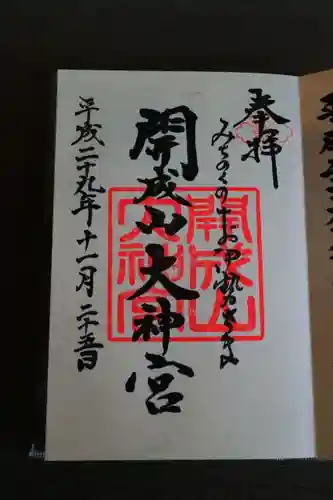 奉拝
みちのくのお伊勢さま
開成山大神宮
開成山
大神宮
平成二十九年十一月二十五日